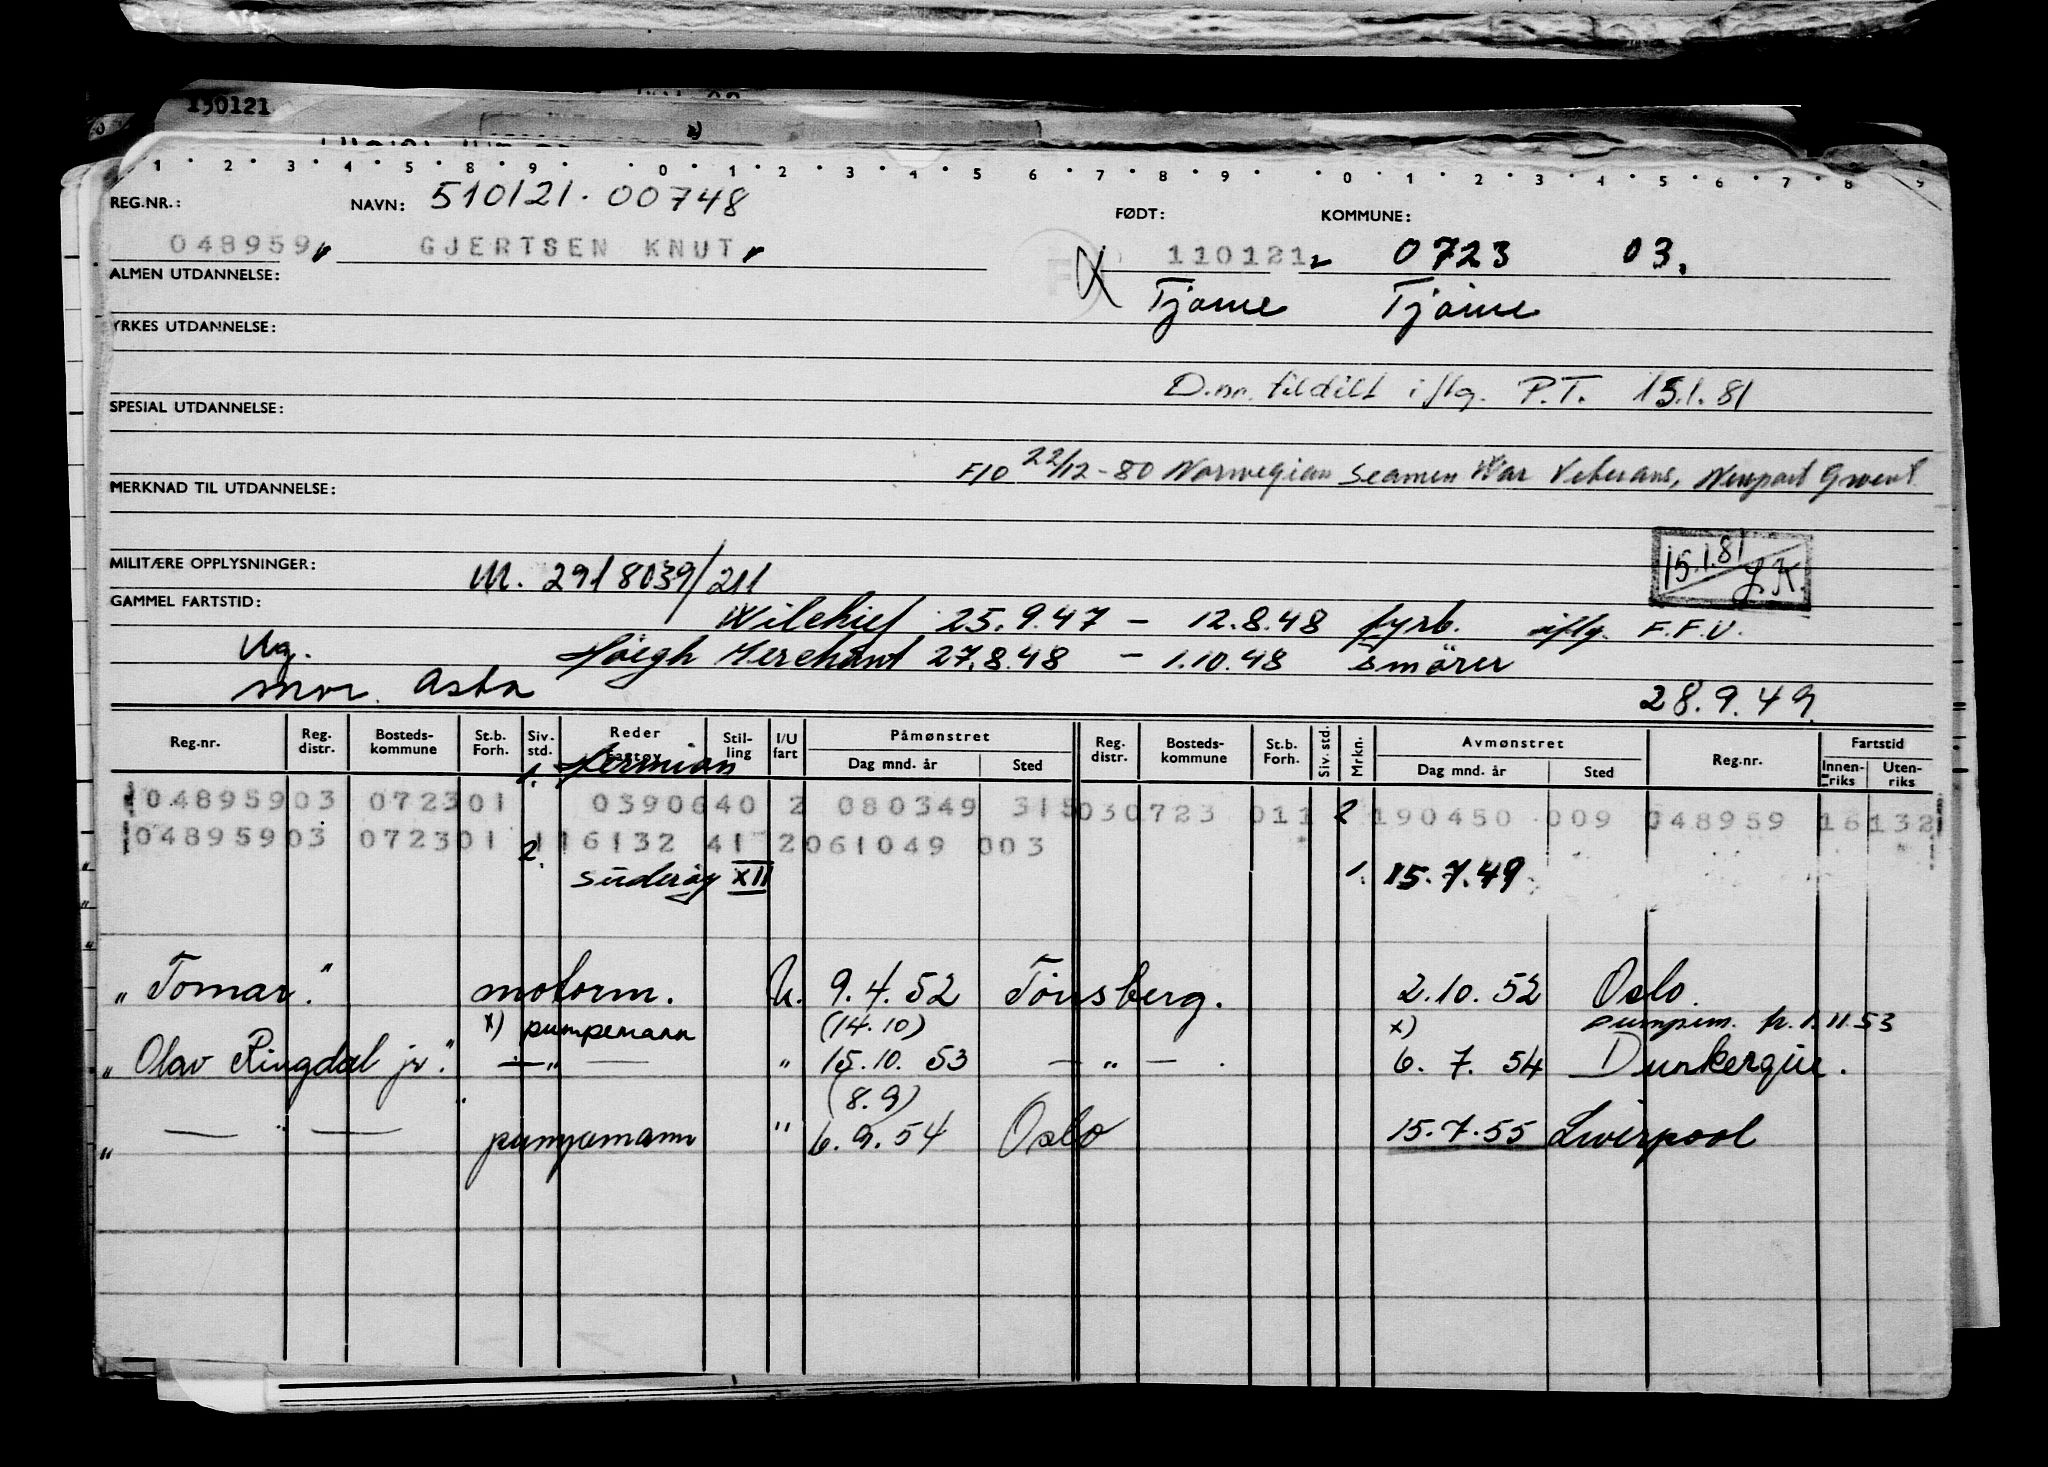 130121
1 2 3 4 5 8 9 0 1 2 3 4 5 6 7 8 9 0 1 2 3 4 5 6 7 8 9
REG.NR.: NAVN: 510121.00748 FØDT: KOMMUNE:
048959 GJERTSEN KNUT 110121 0723 03.
ALMEN UTDANNELSE: Tjøme Tjøme
YRKES UTDANNELSE:
D.nr. tildelt iflg. P.T. 15.1.81
SPESIAL UTDANNELSE:
F10 22/12-80 Norwegian Seamen War Veterans, Newport Gwent
MERKNAD TIL UTDANNELSE:
15.1.81
MILITÆRE OPPLYSNINGER: M. 2918039/211
GAMMEL FARTSTID: Wilchief 25.9.47 - 12.8.48 fyrb. iflg. F.F.U.
Ug. Høegh Merchant 27.8.48 - 1.10.48 smører
mor. Asta 28.9.49
Reg.nr. Reg. distr. Bosteds-kommune St.b. Forh. Siv. std. Reder Stil-ling I/U fart Påmønstret Dag mnd. år Sted Reg. distr. Bosteds-kommune St.b. Forh. Siv. std. Mrkn. Avmønstret Dag mnd. år Sted Reg.nr. Fartstid Innen-riks Uten-riks
1. Hermion
04895903 072301 0390640 2 080349 315030723 011 2 190450 009 048959 16132
04895903 072301 2. 116132 41 2061049 003
Suderøy XII 1. 15.7.49
"Tomar." motorm. U. 9.4.52 Tönsberg. 2.10.52 Oslo.
x) pumpemann (14.10) x) pumpem. fr. 1.11.53
"Olav Ringdal jr." — " — " 15.10.53 — " — . 6.7.54 Dunkerque.
(8.9)
" — " — pumpemann " 6.9.54 Oslo 15.7.55 Liverpool